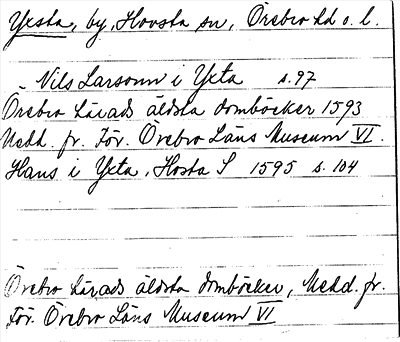 Yxsta, by, Hovsta sn, Örebro hd o. l.
Nils Larsonn i Yxta s. 97
Örebro härads äldsta dombböcker 1593
Medd. fr. För. Örebro Läns Museum VI.
Hans i Yxta, Hosta S 1595 s. 104
Örebro härads äldsta domböcker, Medd. fr.
För. Örebro Läns Museum VI